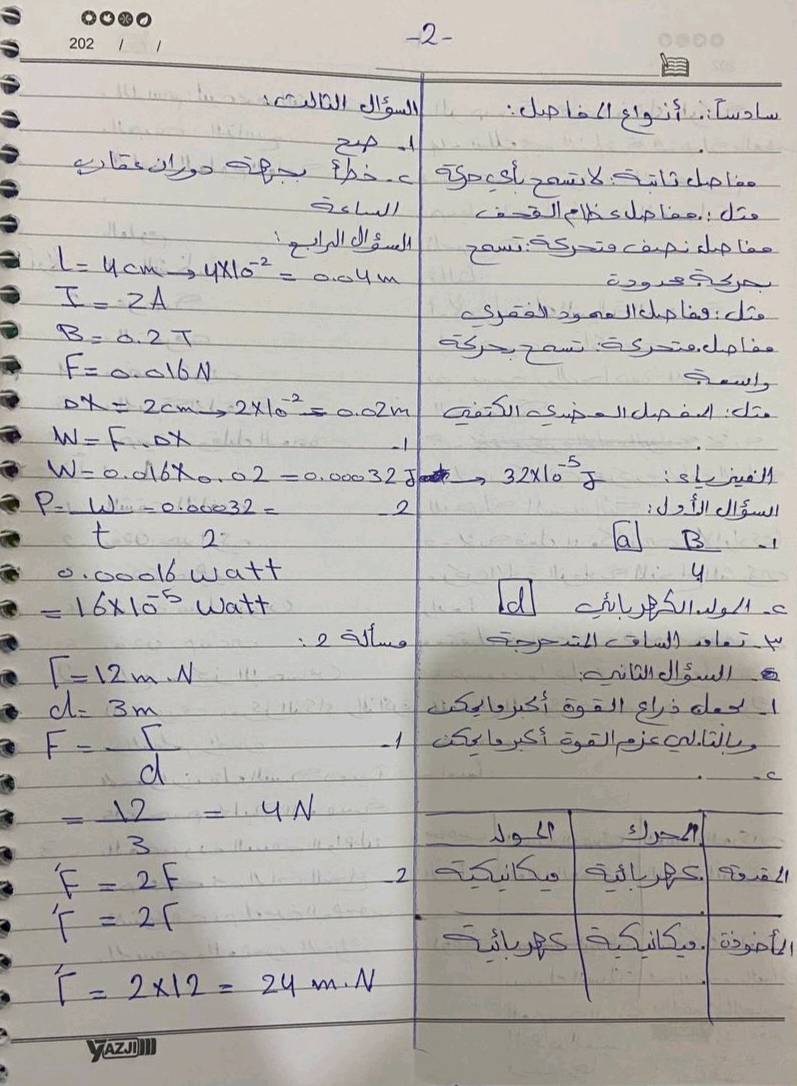 202 / /
-2-
سادساً: أنواع المفاصل:
مفاصل ثابتة: لا تسمح بأي حركة
مثل: مفاصل عظام القحف
مفاصل نصف متحركة: تسمح
بحركة محدودة
مثل: مفاصل العمود الفقري
مفاصل متحركة: تسمح بحركة
واسعة
مثل: المفصل العضدي الكتفي
الفيزياء:
السؤال الأول:
1- B/4 [a]
2- المولد الكهربائي [d]
3- تعامد الساق المتدحرجة
السؤال الثاني:
1- لجعل ذراع القوة أكبر ما يمكن
وبالتالي عزم القوة أكبر ما يمكن
2-
المحرك المولد
المقدمة كهربائية ميكانيكية
المأخوذة ميكانيكية كهربائية
السؤال الثالث:
1- صح
2- خطأ بجهة دوران عقارب
الساعة
السؤال الرابع:
L = 4cm → 4×10⁻² = 0.04m
I = 2A
B = 0.2 T
F = 0.016N
Δx = 2cm → 2×10⁻² = 0.02m
1- W = F.Δx
W = 0.016×0.02 = 0.00032J → 32×10⁻⁵ J
2- P = W/t = 0.00032/2 =
0.00016 watt
= 16×10⁻⁵ watt
مسألة 2:
Γ = 12 m.N
d = 3m
1- F = Γ/d
= 12/3 = 4N
2- F́ = 2F
Γ́ = 2Γ
Γ́ = 2×12 = 24 m.N
YAZJI